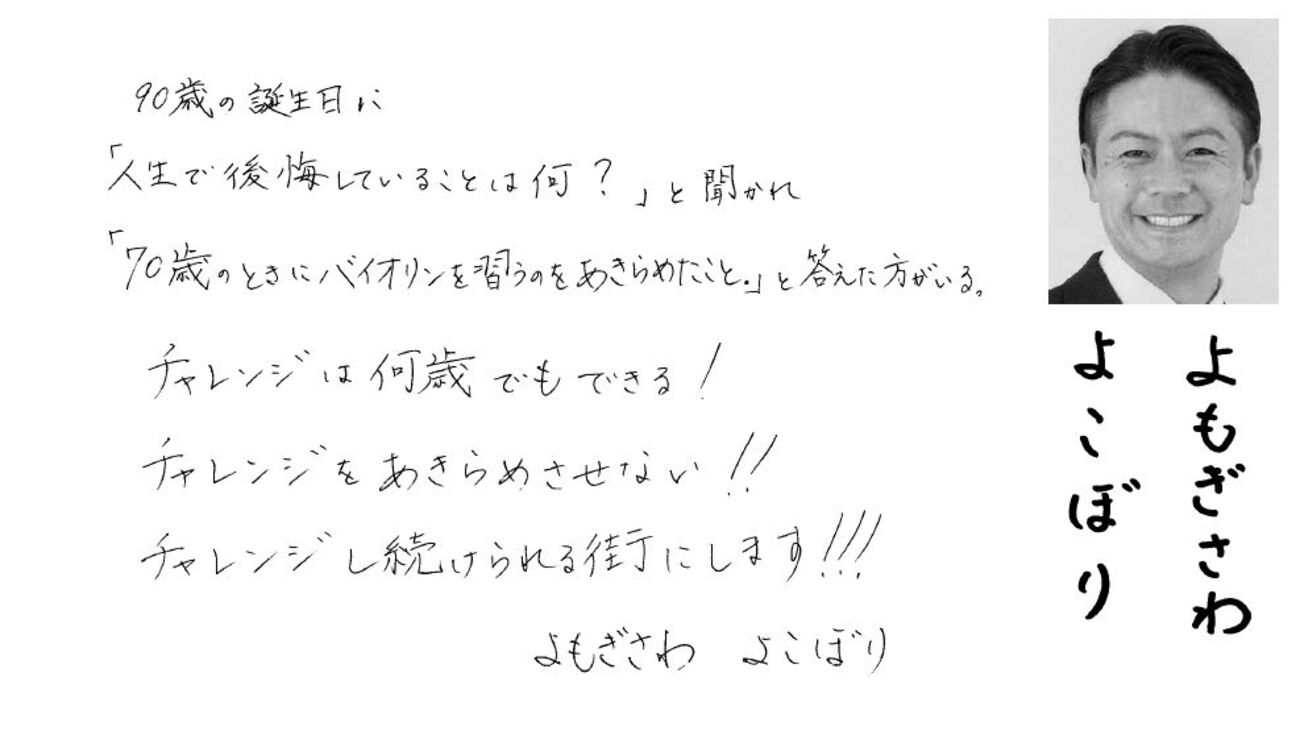 90歳の誕生日に
「人生で後悔していることは何？」と聞かれ
「70歳のときにバイオリンを習うのをあきらめたこと.」と答えた方がいる。
チャレンジは何歳でもできる!
チャレンジをあきらめさせない!!
チャレンジし続けられる街にします!!!
よもぎさわ よこぼり
よもぎさわ
よこぼり